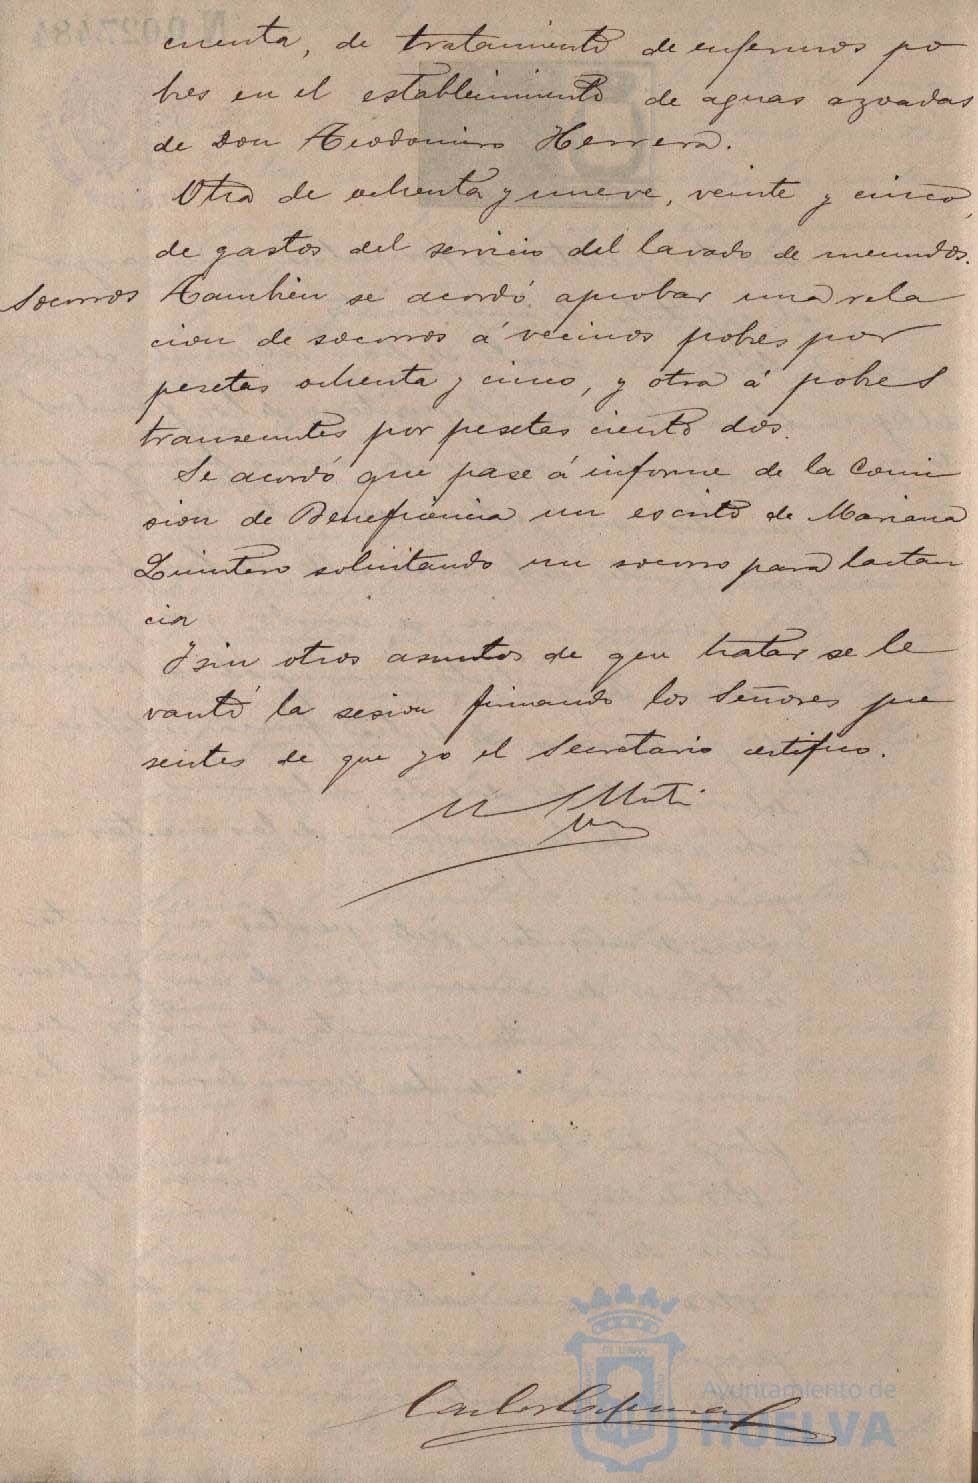 cuenta, de tratamiento de enfermos po
bres en el establecimiento de aguas azoadas
de Don Teodomiro Herrera.
Otra de ochenta y nueve, veinte y cinco,
de gastos del servicio del lavado de menudos.
Socorros Tambien se acordó aprobar una rela
cion de socorros á vecinos pobres por
pesetas ochenta y cinco, y otra á pobres
transeuntes por pesetas ciento dos.
Se acordó que pase á informe de la Comi
sion de Beneficencia un escrito de Mariana
Quintero solicitando un socorro para lactan
cia
Y sin otros asuntos de que tratar se le
vantó la sesion firmando los Señores pre
sentes de que yo el Secretario certifico.
Ayuntamiento de
HUELVA